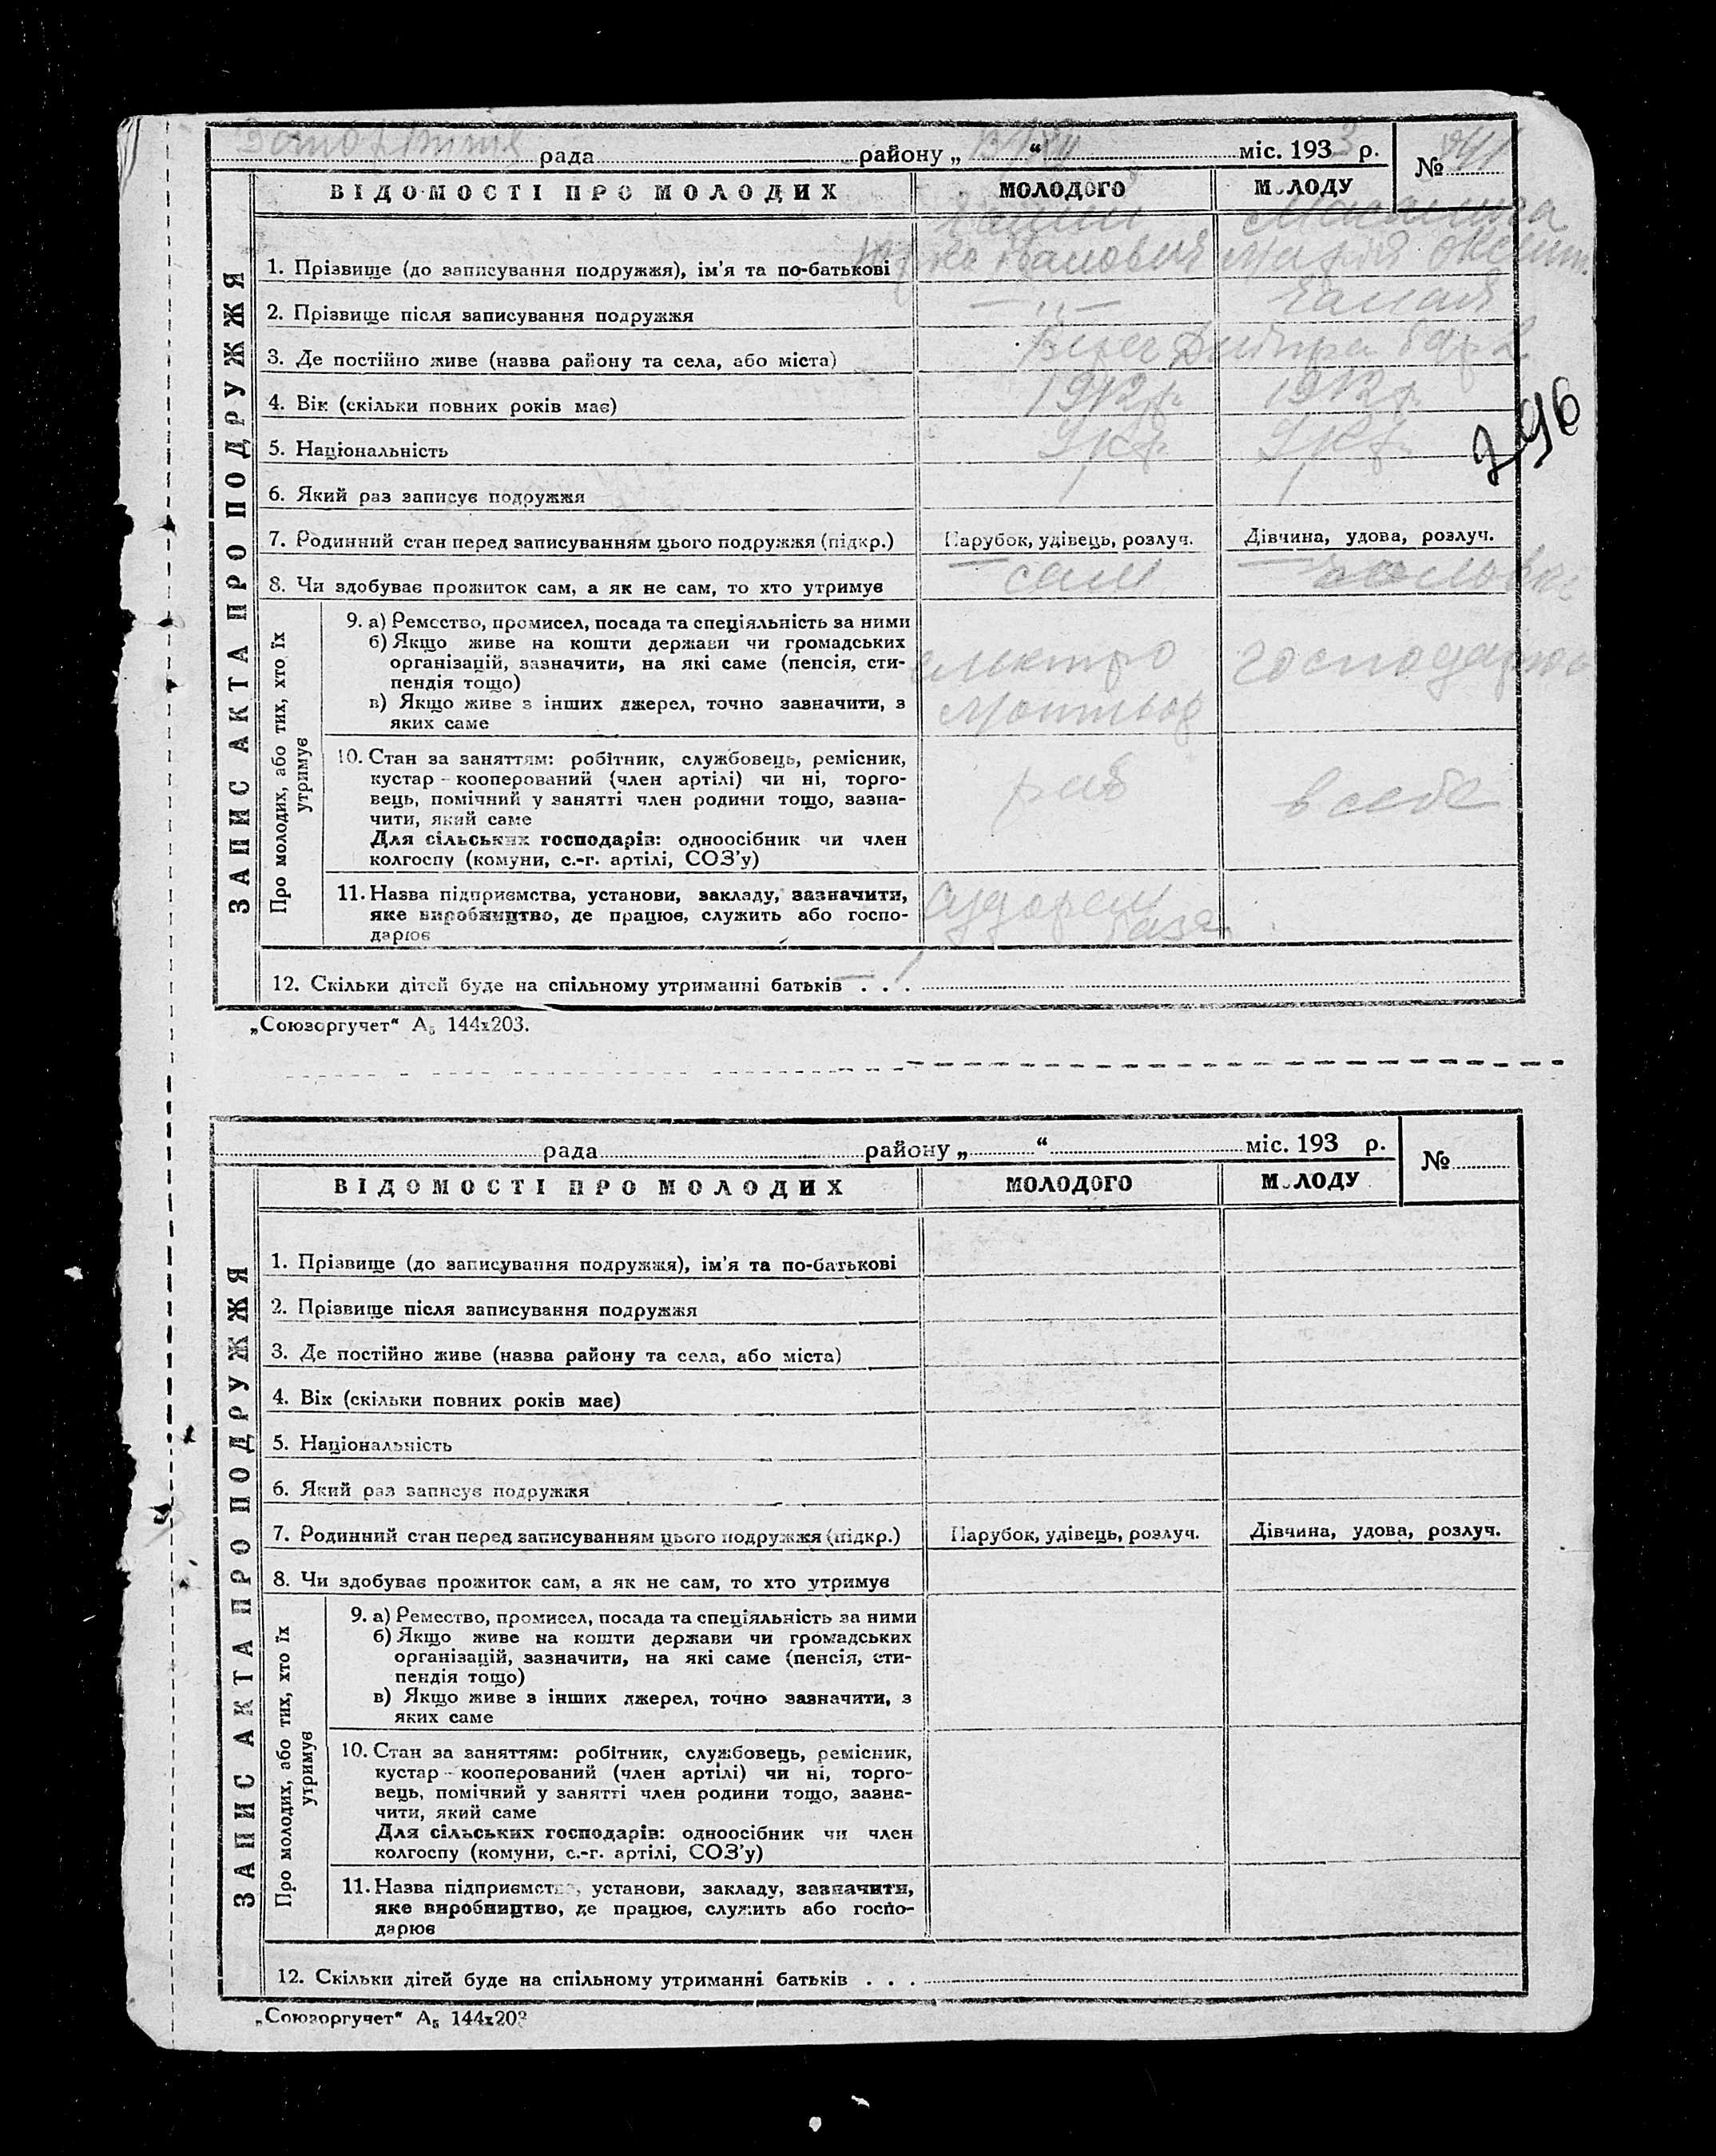 рада району „ “ міс. 1933 р. №
ВІДОМОСТІ ПРО МОЛОДИХ МОЛОДОГО МОЛОДУ
1. Прізвище (до записування подружжя), ім’я та по-батькові Іванович Марія
2. Прізвище після записування подружжя — „ —
3. Де постійно живе (назва району та села, або міста) Дніпра
4. Вік (скільки повних років має) 1912 р. 1912 р.
5. Національність Укр. Укр.
6. Який раз записує подружжя 1 1
7. Родинний стан перед записуванням цього подружжя (підкр.) Парубок, удівець, розлуч. Дівчина, удова, розлуч.
8. Чи здобуває прожиток сам, а як не сам, то хто утримує сам
9. а) Ремество, промисел, посада та спеціяльність за ними
б) Якщо живе на кошти держави чи громадських
організацій, зазначити, на які саме (пенсія, сти-
пендія тощо)
в) Якщо живе з інших джерел, точно зазначити, з
яких саме
електро
монтьор
10. Стан за заняттям: робітник, службовець, ремісник,
кустар - кооперований (член артілі) чи ні, торго-
вець, помічний у занятті член родини тощо, зазна-
чити, який саме
Для сільських господарів: одноосібник чи член
колгоспу (комуни, с.-г. артілі, СОЗ’у)
роб в себе
11. Назва підприємства, установи, закладу, зазначити,
яке виробництво, де працює, служить або госпо-
дарює
база
12. Скільки дітей буде на спільному утриманні батьків . . .
ЗАПИС АКТА ПРО ПОДРУЖЖЯ
Про молодих, або тих, хто їх
утримує
296
„Союзоргучет“ А₅ 144х203.
рада району „ “ міс. 193 р. №
ВІДОМОСТІ ПРО МОЛОДИХ МОЛОДОГО МОЛОДУ
1. Прізвище (до записування подружжя), ім’я та по-батькові
2. Прізвище після записування подружжя
3. Де постійно живе (назва району та села, або міста)
4. Вік (скільки повних років має)
5. Національність
6. Який раз записує подружжя
7. Родинний стан перед записуванням цього подружжя (підкр.) Парубок, удівець, розлуч. Дівчина, удова, розлуч.
8. Чи здобуває прожиток сам, а як не сам, то хто утримує
9. а) Ремество, промисел, посада та спеціяльність за ними
б) Якщо живе на кошти держави чи громадських
організацій, зазначити, на які саме (пенсія, сти-
пендія тощо)
в) Якщо живе з інших джерел, точно зазначити, з
яких саме
10. Стан за заняттям: робітник, службовець, ремісник,
кустар - кооперований (член артілі) чи ні, торго-
вець, помічний у занятті член родини тощо, зазна-
чити, який саме
Для сільських господарів: одноосібник чи член
колгоспу (комуни, с.-г. артілі, СОЗ’у)
11. Назва підприємства, установи, закладу, зазначити,
яке виробництво, де працює, служить або госпо-
дарює
12. Скільки дітей буде на спільному утриманні батьків . . .
ЗАПИС АКТА ПРО ПОДРУЖЖЯ
Про молодих, або тих, хто їх
утримує
„Союзоргучет“ А₅ 144х203